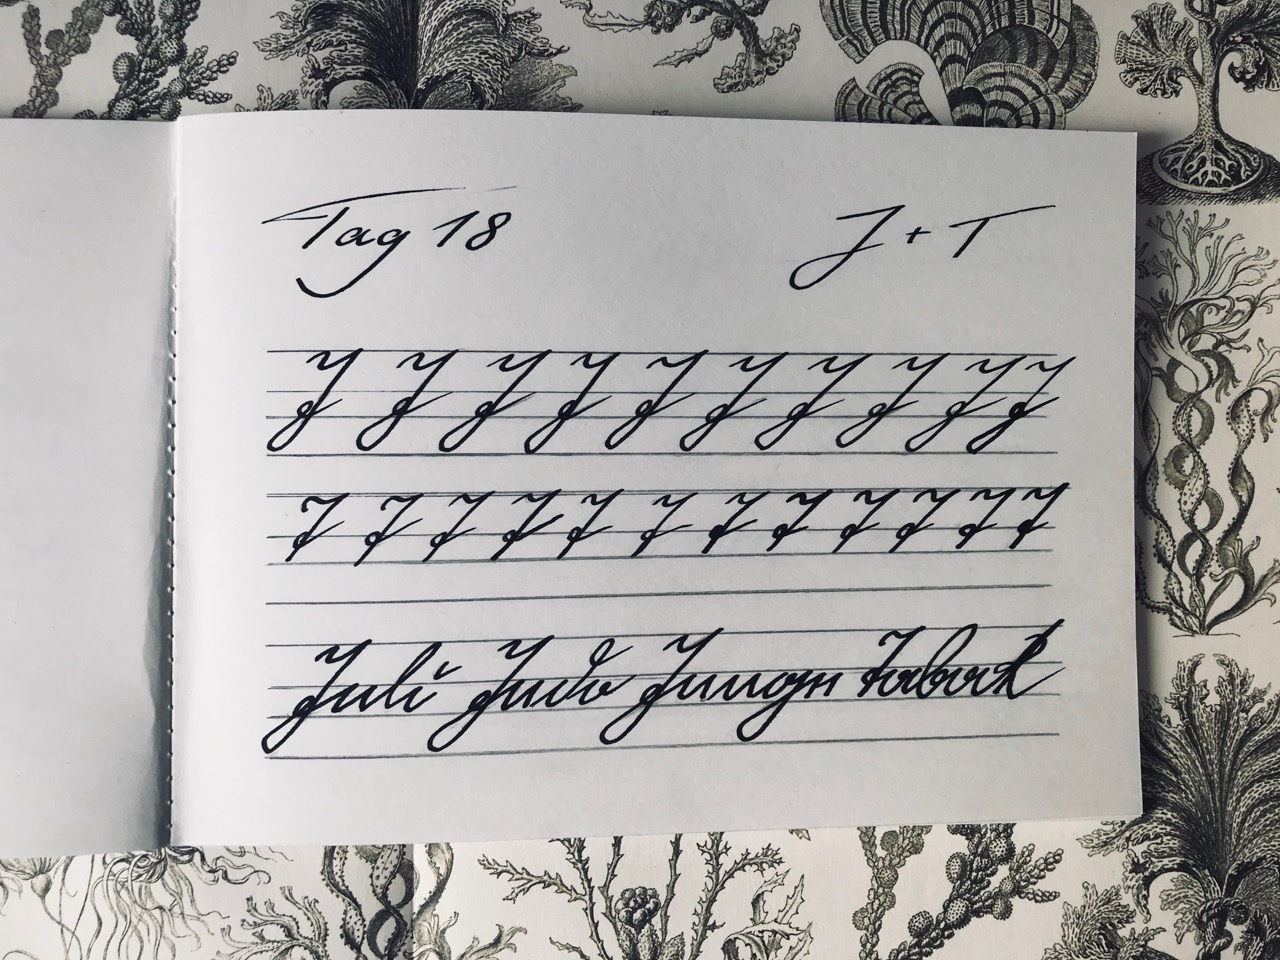 Tag 18 J + T
J J J J J J J J J J
T T T T T T T T T T T T
Juli Judo Junge Tabak